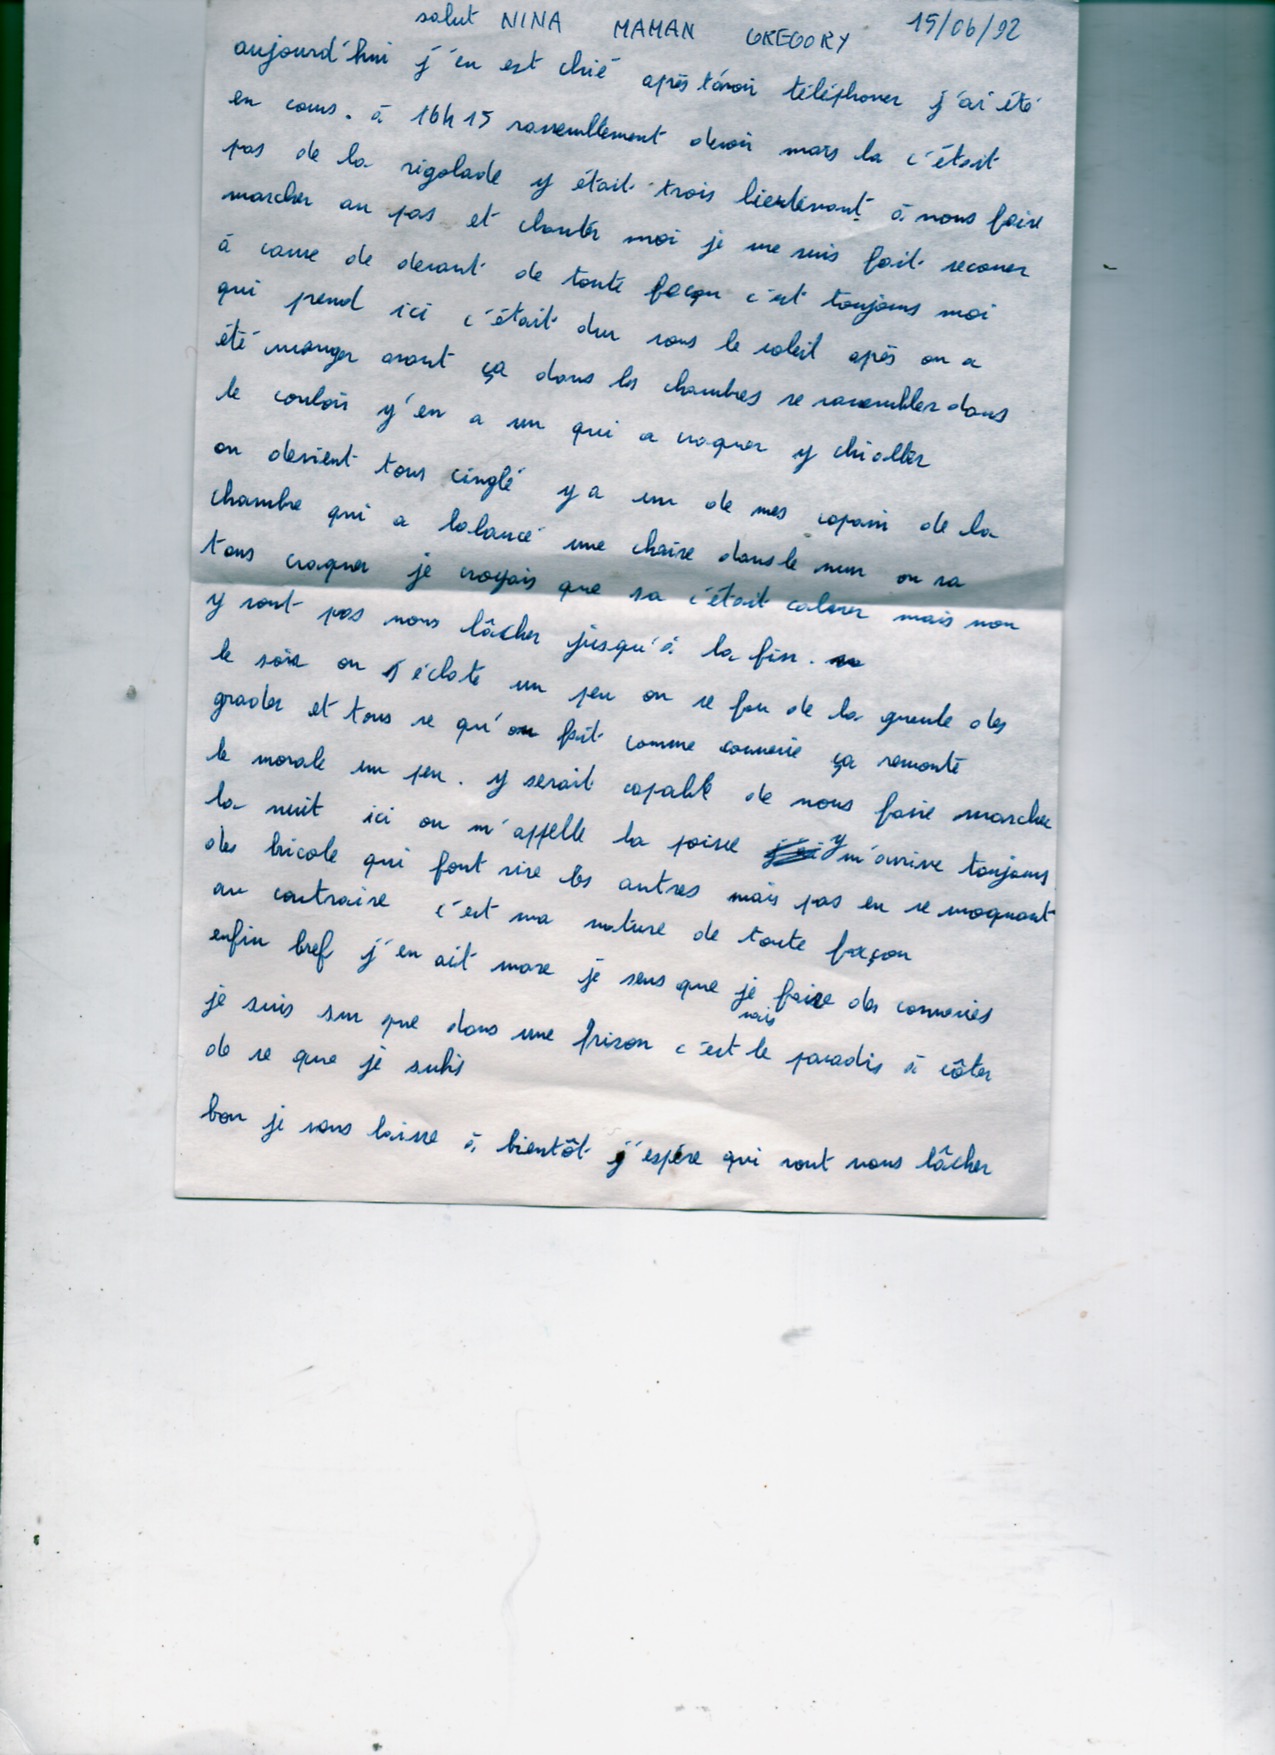 salut NINA MAMAN GREGORY 15/06/92
aujourd'hui j'en est chié après t'avoir téléphoner j'ai été
en cours. à 16h15 rassemblement devoir mars la c'était
pas de la rigolade y était trois lieutenant à nous faire
marcher au pas et chanter moi je me suis fait secouer
à cause de devant de toute façon c'est toujours moi
qui prend ici c'était dur sous le soleil après on a
été manger avant ça dans les chambres se rassembler dans
le couloir y'en a un qui a craquer y chialler
on devient tous cinglé y a un de mes copain de la
chambre qui a balancé une chaise dans le mur on va
tous craquer je croyais que sa c'était calmer mais non
y vont pas nous lâcher jusqu'à la fin.
le soir on s'éclate un peu on se fou de la gueule des
grader et tous se qu'on fait comme connerie ça remonte
le morale un peu. y serait capable de nous faire marcher
la nuit ici on m'appelle la poisse y m'arrive toujours
des bricole qui font rire les autres mais pas en se moquant
au contraire c'est ma nature de toute façon
enfin bref j'en ait mare je sens que je vais faire des conneries
je suis sur que dans une prison c'est le paradis à côter
de se que je subis
bon je vous laisse à bientôt j'espére qui vont nous lâcher